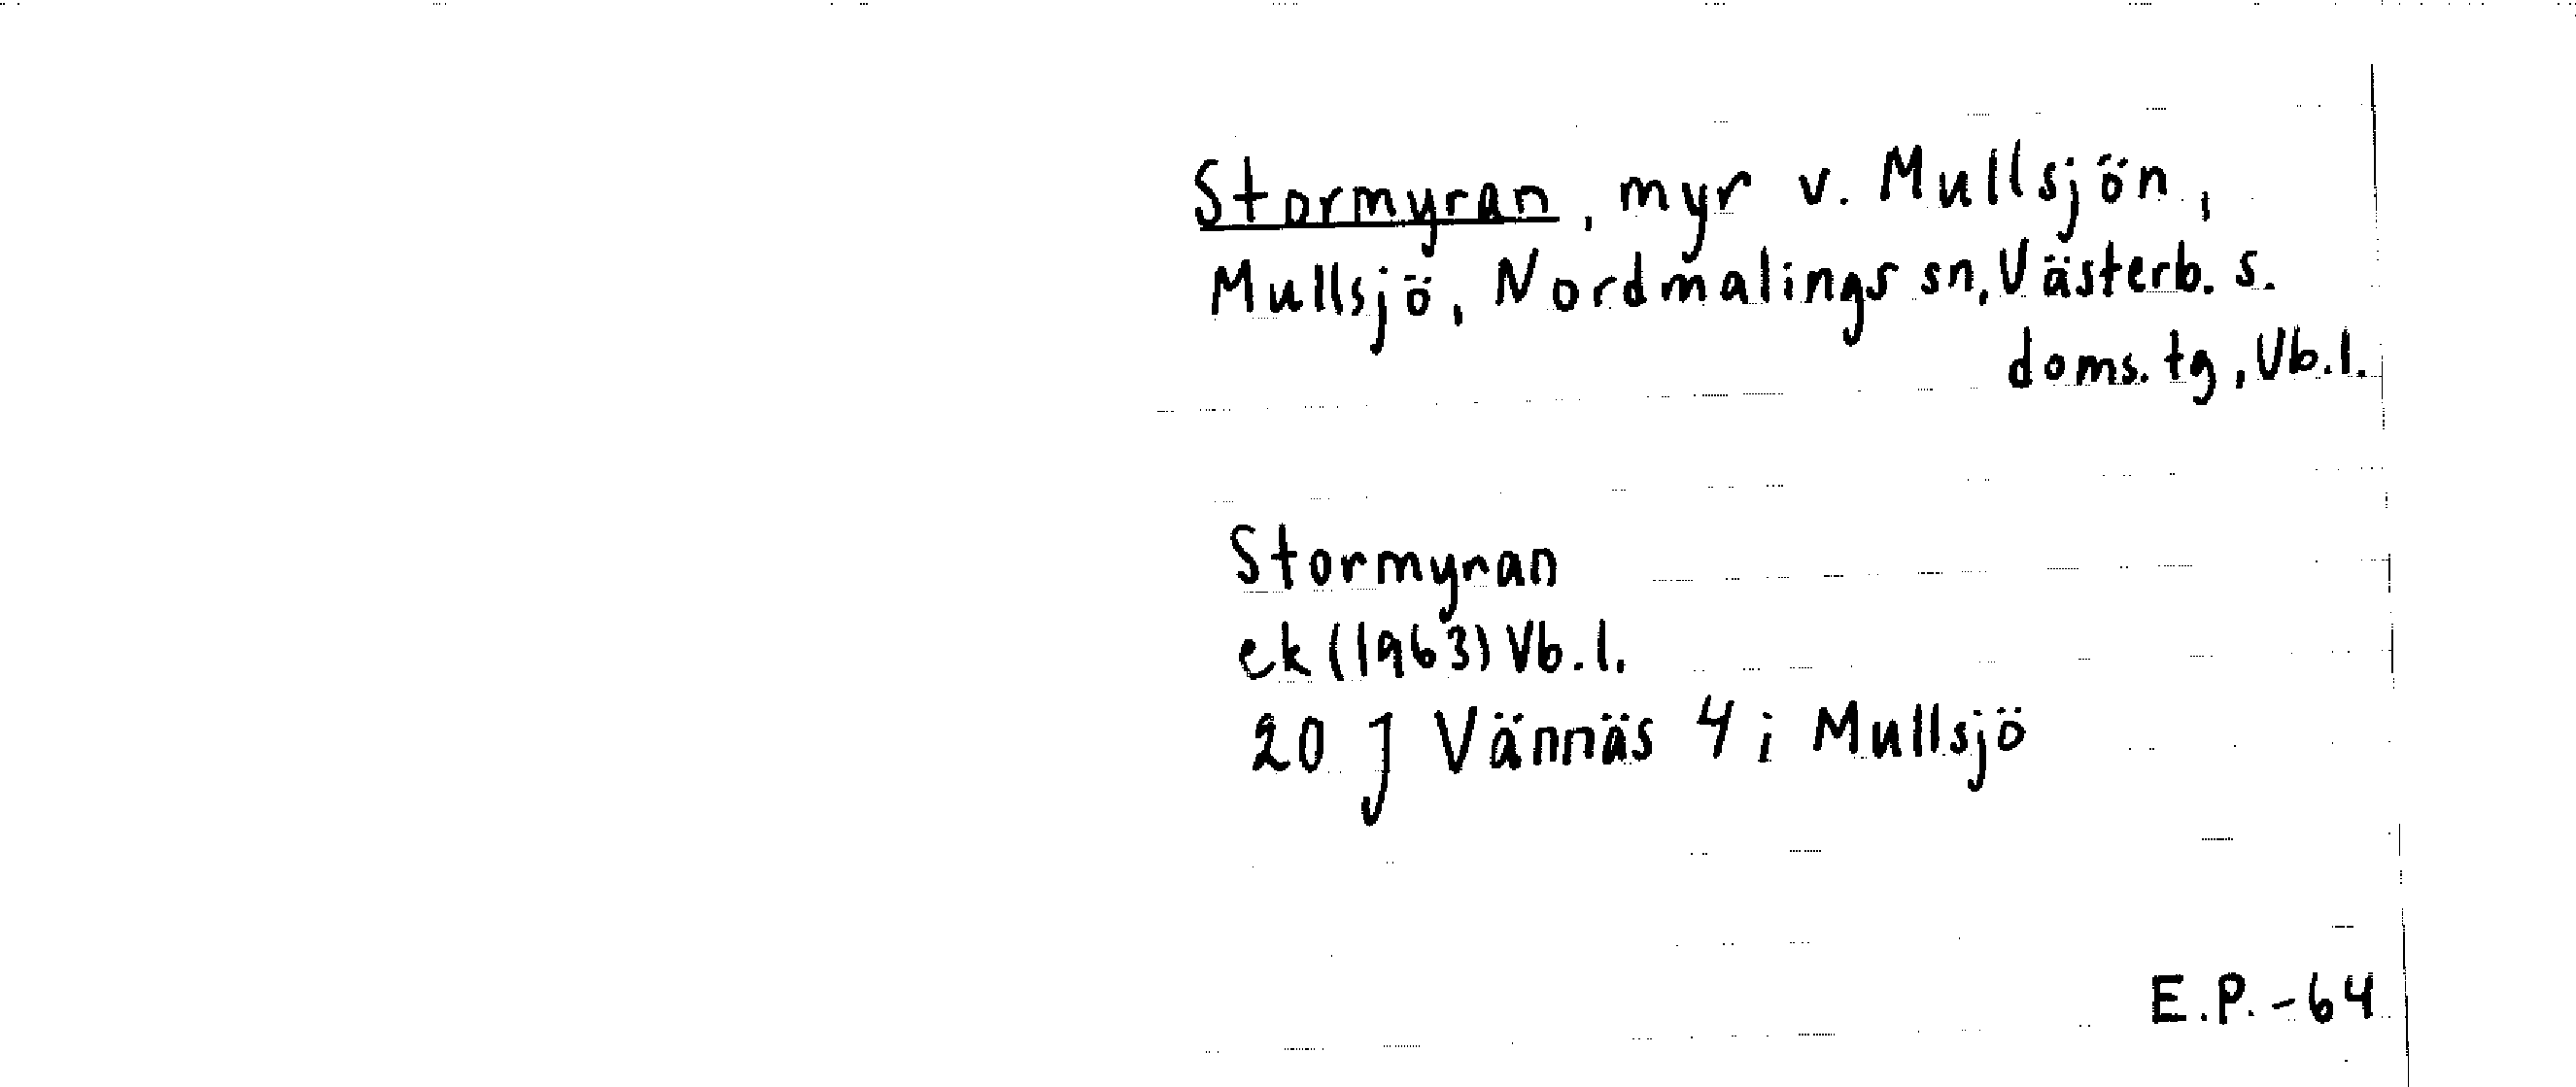 Stormyran, myr v. Mullsjön,
Mullsjö, Nordmalings sn, Västerb. s.
doms. tg, Vb.l.
Stormyran
ek (1963) Vb.l.
20 J Vännäs 4 i Mullsjö
E.P. -64